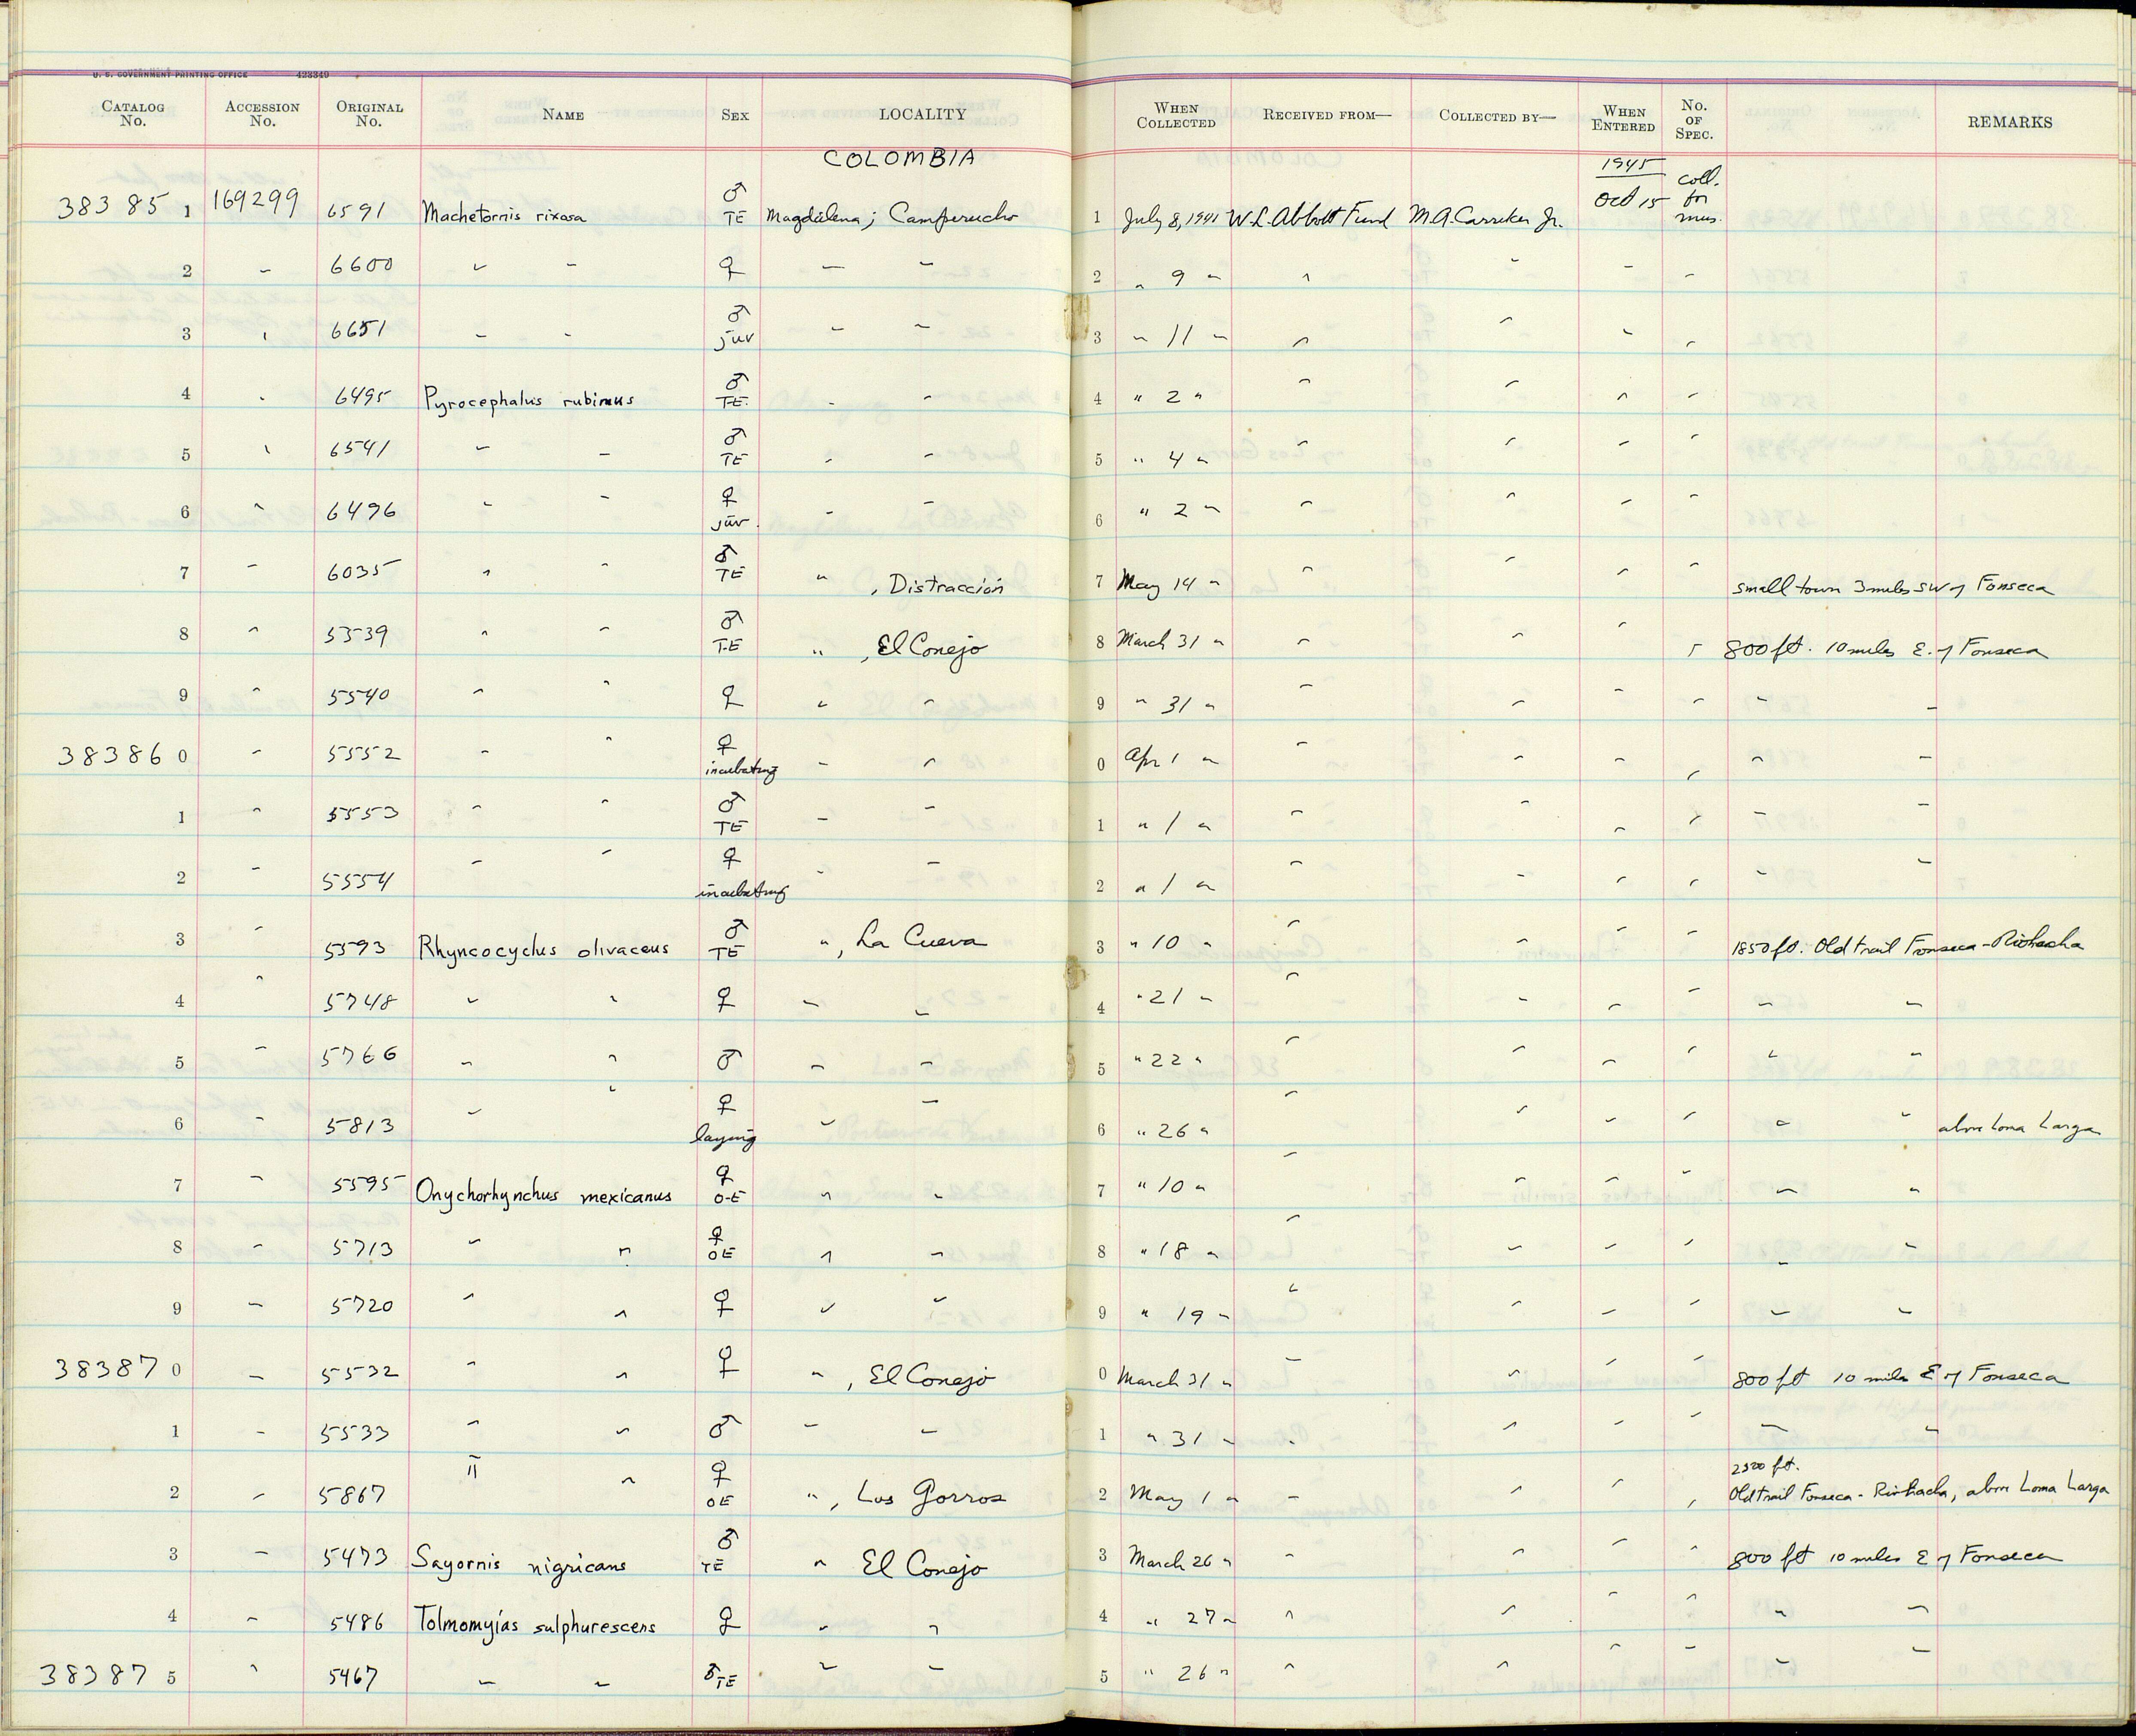 U. S. GOVERNMENT PRINTING OFFICE 423349
CATALOG No. ACCESSION No. ORIGINAL No. NAME SEX LOCALITY WHEN COLLECTED RECEIVED FROM— COLLECTED BY— WHEN ENTERED No. OF SPEC. REMARKS
COLOMBIA 1945
38385 1 169299 6591 Machetornis rixosa ♂ TE Magdalena; Camperucho 1 July 8, 1941 W.L. Abbott Fund M.A. Carriker Jr. Oct 15 coll. for mus.
2 " 6600 " " ♀ " " 2 " 9 " " " " "
3 " 6651 " " ♂ juv " " 3 " 11 " " " " "
4 " 6495 Pyrocephalus rubinus ♂ TE. " " 4 " 2 " " " " "
5 " 6541 " " ♂ TE " " 5 " 4 " " " " "
6 " 6496 " " ♀ juv. " " 6 " 2 " " " " "
7 " 6035 " " ♂ TE " , Distracción 7 May 14 " " " " " small town 3 miles SW of Fonseca
8 " 5539 " " ♂ TE " , El Conejo 8 March 31 " " " " " 800 ft. 10 miles E. of Fonseca
9 " 5540 " " ♀ " " 9 " 31 " " " " " " "
38386 0 " 5552 " " ♀ incubating " " 0 Apr 1 " " " " " " "
1 " 5553 " " ♂ TE " " 1 " 1 " " " " " " "
2 " 5554 " " ♀ incubating " " 2 " 1 " " " " " " "
3 " 5593 Rhyncocyclus olivaceus ♂ TE " , La Cueva 3 " 10 " " " " " 1850 ft. Old trail Fonseca-Riohacha
4 " 5748 " " ♀ " " 4 " 21 " " " " " " "
5 " 5766 " " ♂ " " 5 " 22 " " " " " " "
6 " 5813 " " ♀ laying " " 6 " 26 " " " " " " " above Loma Larga
7 " 5595 Onychorhynchus mexicanus ♀ O-E " " 7 " 10 " " " " " " "
8 " 5713 " " ♀ OE " " 8 " 18 " " " " " " "
9 " 5720 " " ♀ " " 9 " 19 " " " " " " "
38387 0 " 5532 " " ♀ " , El Conejo 0 March 31 " " " " " 800 ft 10 miles E of Fonseca
1 " 5533 " " ♂ " " 1 " 31 " " " " " " "
2 " 5867 " " ♀ OE " , Los Gorros 2 May 1 " " " " " 2500 ft. Old trail Fonseca - Riohacha, above Loma Larga
3 " 5473 Sayornis nigricans ♂ TE " El Conejo 3 March 26 " " " " " 800 ft 10 miles E of Fonseca
4 " 5486 Tolmomyias sulphurescens ♀ " " 4 " 27 " " " " " " "
38387 5 " 5467 " " ♂ TE " " 5 " 26 " " " " " " "